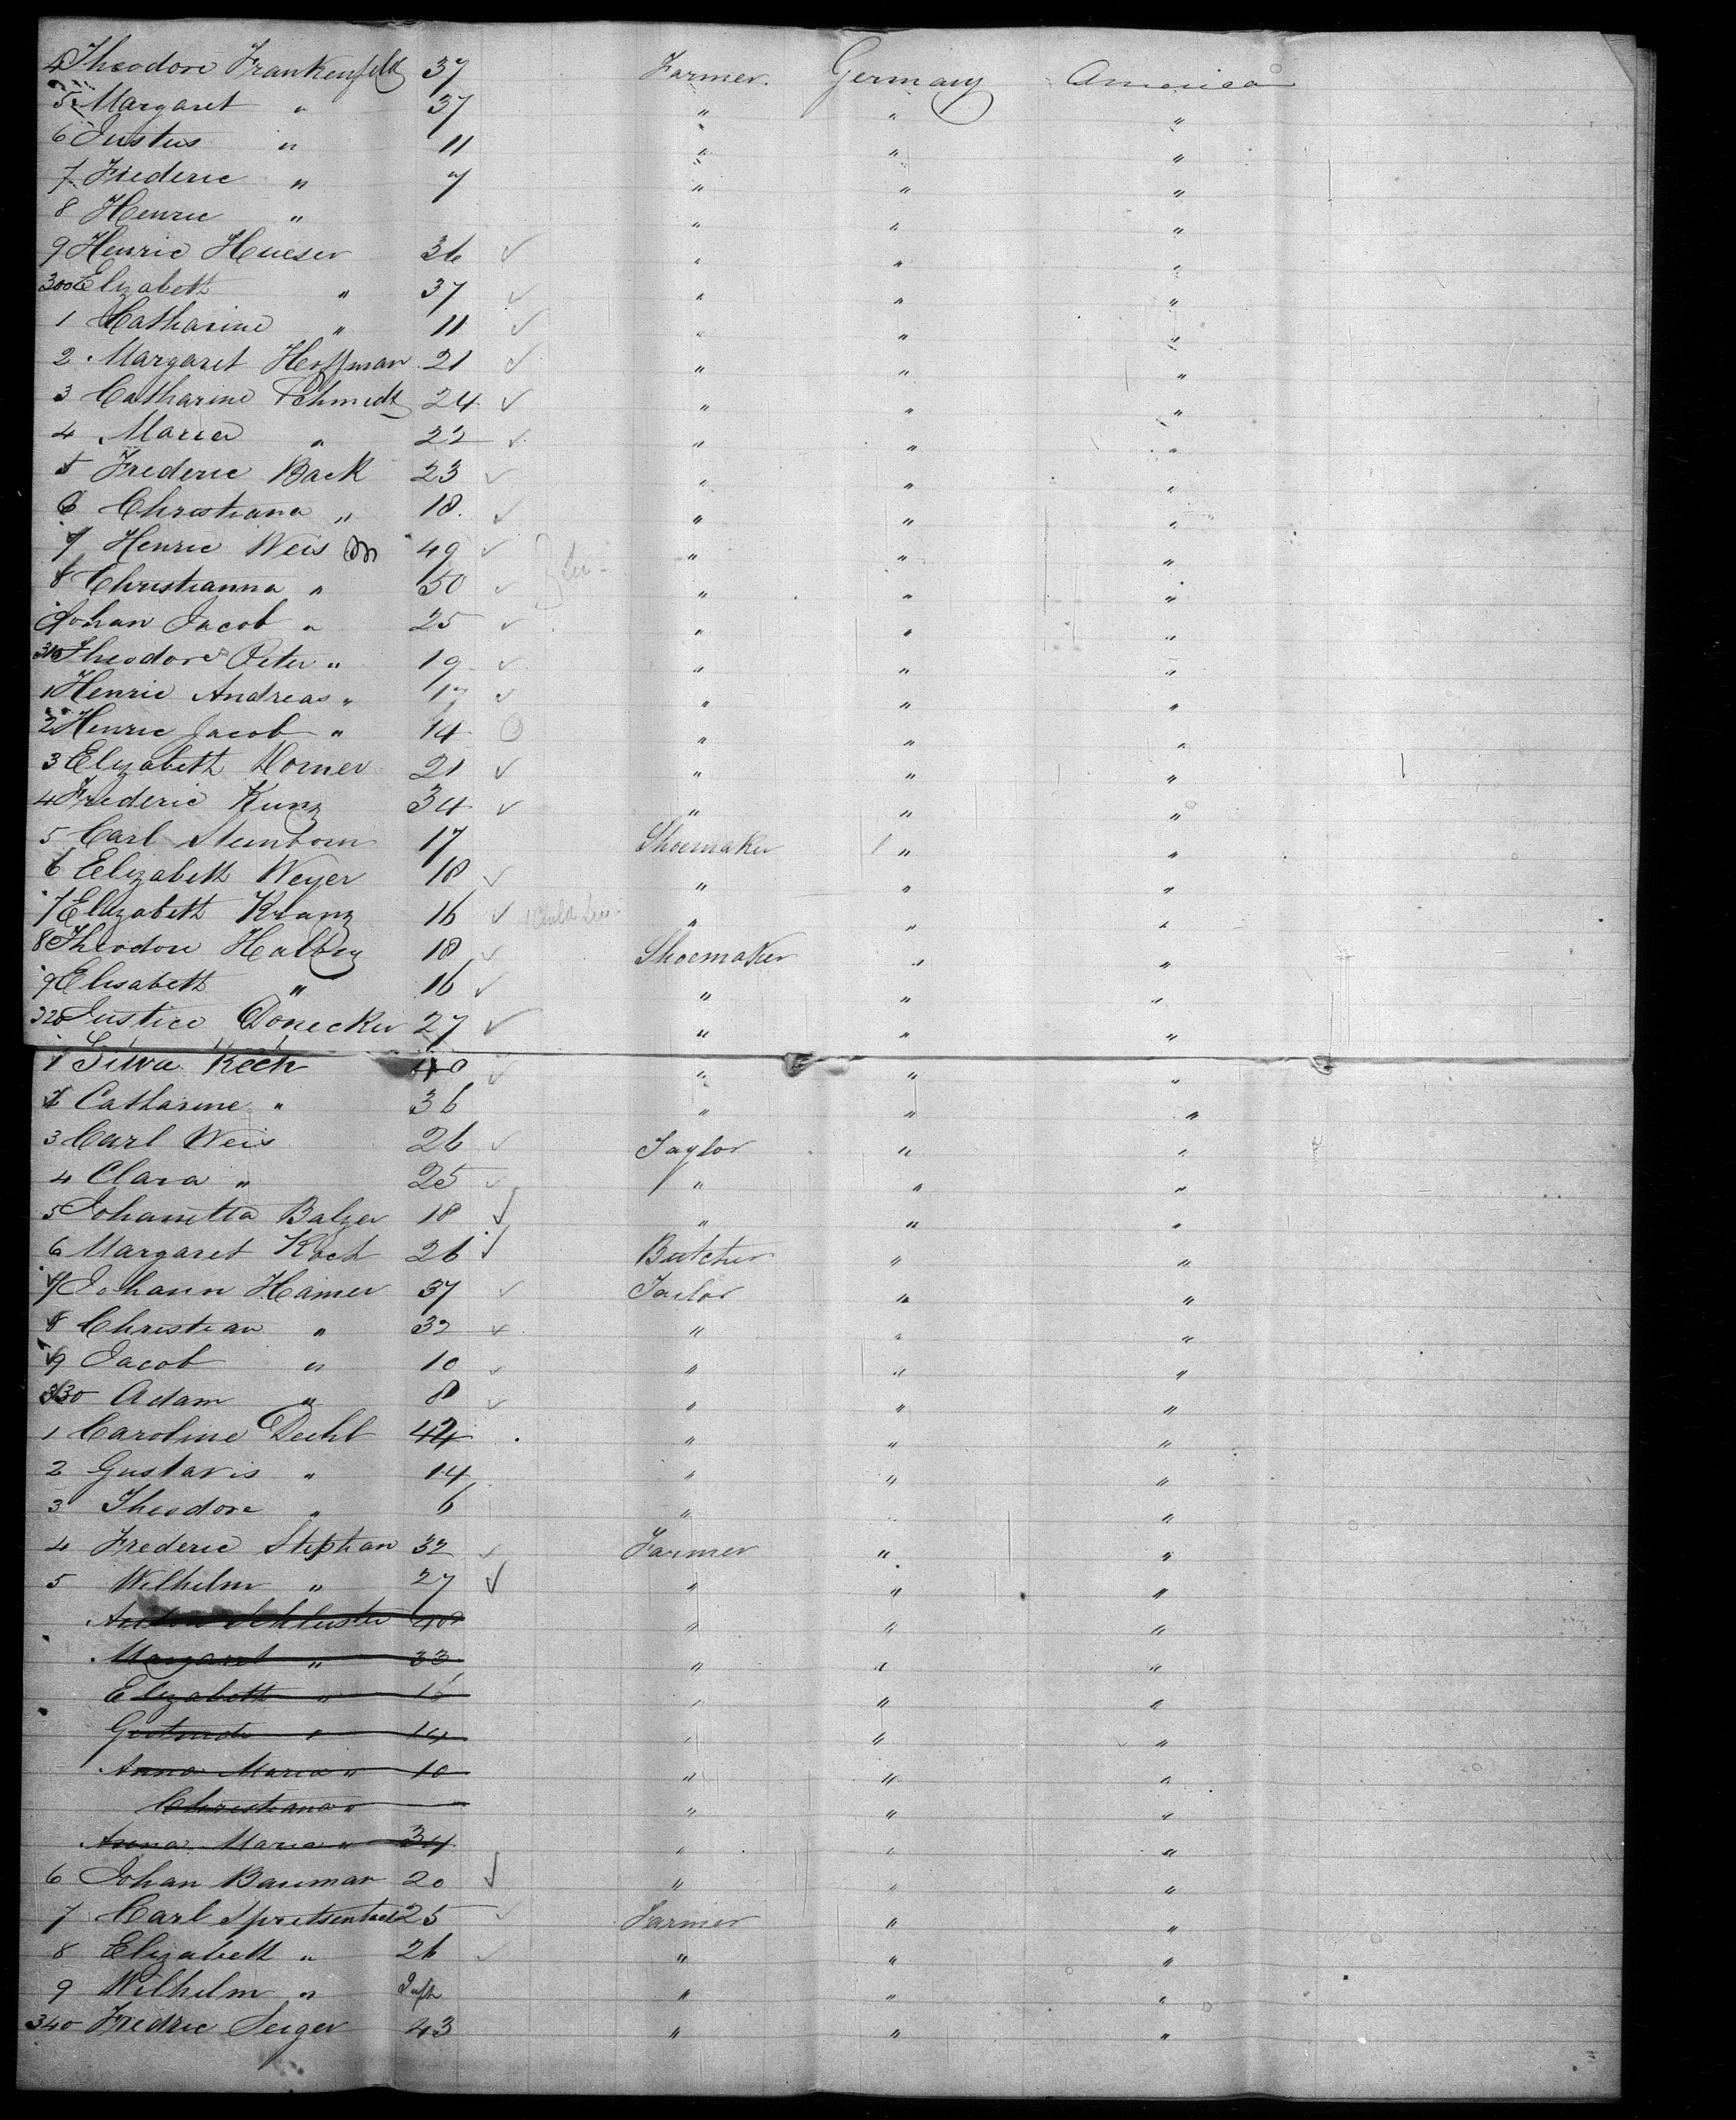 4 Theodore Frankenfeld 37 Farmer. Germany America
5 Margaret " 37 " " "
6 Justus " 11 " " "
7 Frederic " 7 " " "
8 Henric " " " "
9 Henric Hueser 36 ✓ " " "
300 Elizabeth " 37 ✓ " " "
1 Catharine " 11 ✓ " " "
2 Margaret Hoffman 21 ✓ " " "
3 Catharine Schmidt 24 ✓ " " "
4 Maria " 22 ✓ " " "
5 Frederic Back 23 ✓ " " "
6 Christiana " 18. ✓ " " "
7 Henric Weis 49 ✓ " " "
8 Christianna " 50 ✓ " " "
9 Johan Jacob " 25 ✓ " " "
310 Theodore Peter " 19 ✓ " " "
1 Henric Andreas " 17 ✓ " " "
2 Henric Jacob " 14 O " " "
3 Elizabeth Horner 21 ✓ " " "
4 Frederic Kunz 34 ✓ " " "
5 Carl Steinborn 17 Shoemaker " "
6 Elizabeth Weyer 18 ✓ " " "
7 Elizabeth Kranz 16 ✓ 1 Child " " "
8 Theodore Halbey 18 ✓ Shoemaker " "
9 Elisabeth " 16 ✓ " " "
320 Justice Donecker 27 ✓ " " "
1 Keck 40 ✓ " " "
2 Catharine " 36 " " "
3 Carl Weis 26 ✓ Taylor " "
4 Clara " 25 ✓ " " "
5 Johanetta Balzer 18 ✓ " " "
6 Margaret Koch 26 ✓ Butcher " "
7 Johann Hamer 37 ✓ Tailor " "
8 Christian " 32 ✓ " " "
9 Jacob " 10 ✓ " " "
330 Adam " 8 ✓ " " "
1 Caroline Decht 42 " " "
2 Gustavis " 14 " " "
3 Theodore " 6 " "
4 Frederic Stephan 32 ✓ Farmer " "
5 Wilhelm " 27 ✓ " " "
Anton Schluster 40 " " "
Margaret " 33 " " "
Elizabeth " 16 " " "
Gertrude " 14 " " "
Anna Maria " 10 " " "
Christiana " " " "
Anna Maria " 34 " " "
6 Johan Bauman 20 ✓ " " "
7 Carl 25 ✓ Farmer " "
8 Elizabeth " 26 ✓ " " "
9 Wilhelm " Inft " " "
340 Fredric Seiger 43 " " "